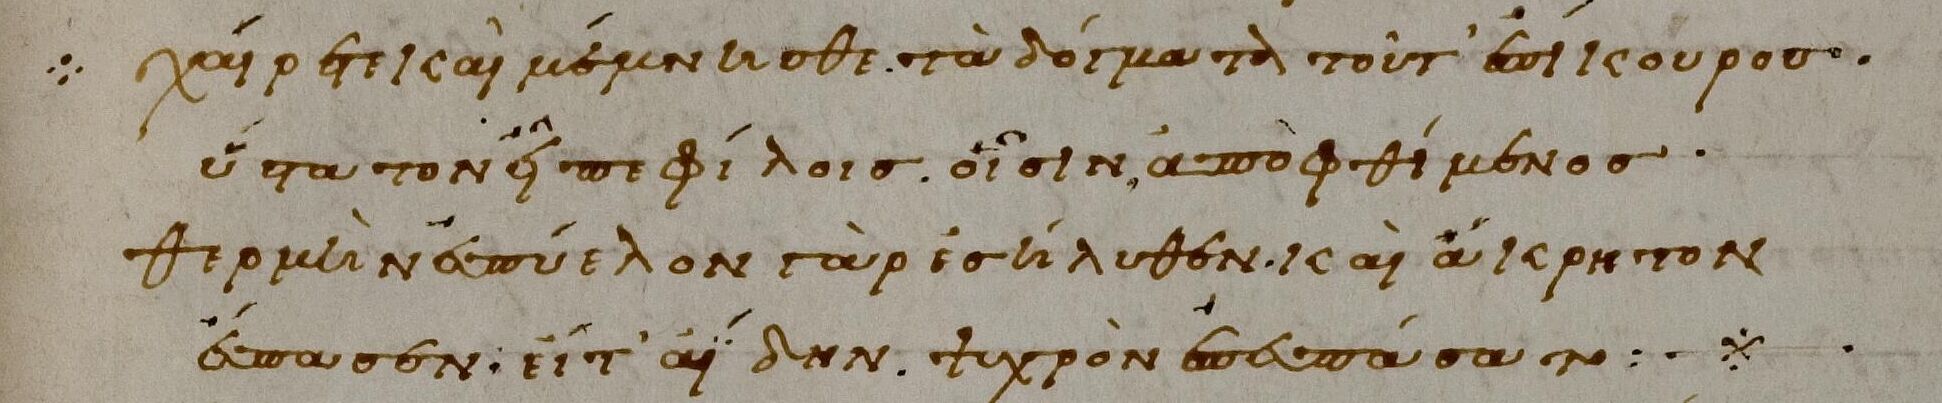 χαίρετε καὶ μέμνησθε τὰ δόγματα τοῦτ' ἐπίκουρος.
ὕστατον εἶπε φίλοις. οἷσιν, ἀποφθίμενος.
θερμὴν ἐς πύελον γὰρ ἐσήλυθεν. καὶ ἄκρητον
ἔσπασεν. εἶτ' ἀΐδην. ψυχρὸν ἐπεσπάσατο :